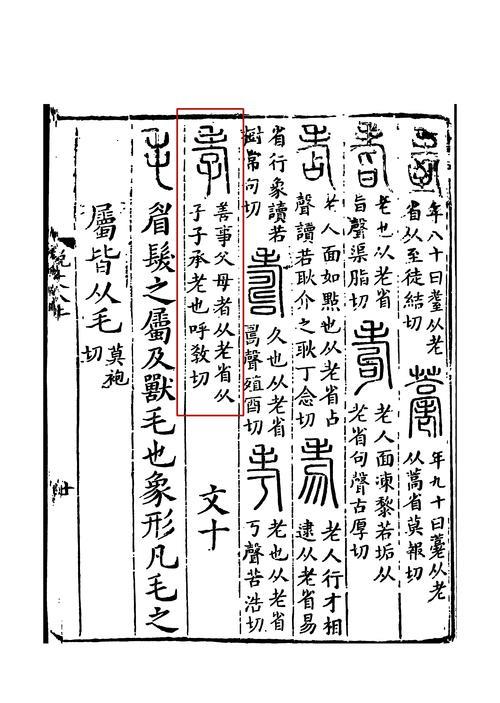 耋
年八十曰耋从老
省从至徒結切
薹
年九十曰薹从老
从蒿省莫報切
耆
老也从老省
旨聲渠脂切
耇
老人面凍黎若垢从
老省句聲古厚切
老人面如點也从老省占
聲讀若耿介之耿丁念切
老人行才相
逮从老省易
省行象讀若
樹常句切
壽
久也从老省
𠷎聲殖酉切
考
老也从老省
丂聲苦浩切
孝
善事父母者从老省从
子子承老也呼教切
文十
毛
眉髮之屬及獸毛也象形凡毛之
屬皆从毛
莫袍
切